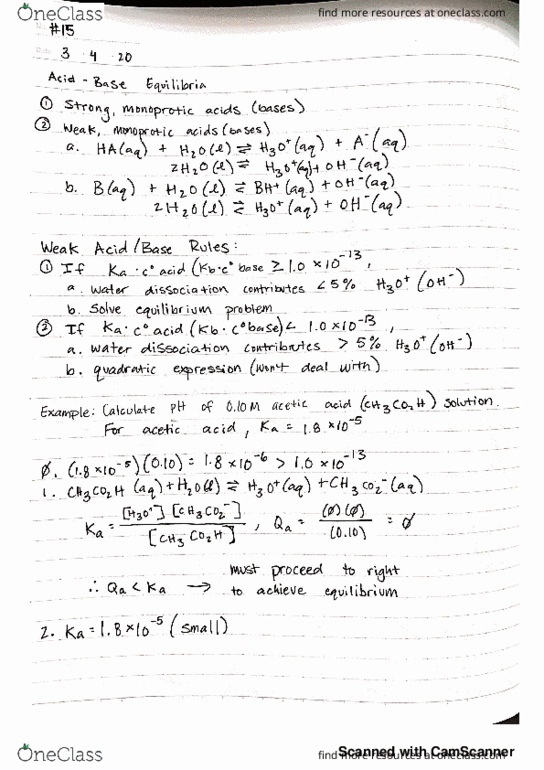 OneClass
find more resources at oneclass.com
#15
3 . 4 . 20
Acid - Base Equilibria
① Strong, monoprotic acids (bases)
② Weak, monoprotic acids (bases)
a. HA(aq) + H2O(l) ⇌ H3O+(aq) + A-(aq)
2H2O(l) ⇌ H3O+(aq) + OH-(aq)
b. B(aq) + H2O(l) ⇌ BH+(aq) + OH-(aq)
2H2O(l) ⇌ H3O+(aq) + OH-(aq)
Weak Acid/Base Rules:
① If Ka · c° acid (Kb · c° base ≥ 1.0 × 10^-13,
a. water dissociation contributes < 5% H3O+ (OH-)
b. Solve equilibrium problem
② If Ka · c° acid (Kb · c° base) < 1.0 × 10^-13,
a. water dissociation contributes > 5% H3O+ (OH-)
b. quadratic expression (won't deal with)
Example: Calculate pH of 0.10M acetic acid (CH3CO2H) solution.
For acetic acid, Ka = 1.8 × 10^-5
0. (1.8 × 10^-5)(0.10) = 1.8 × 10^-6 > 1.0 × 10^-13
1. CH3CO2H (aq) + H2O(l) ⇌ H3O+(aq) + CH3CO2-(aq)
Ka = [H3O+] [CH3CO2-] / [CH3CO2H] , Qa = (0)(0) / (0.10) = 0
∴ Qa < Ka → must proceed to right
to achieve equilibrium
2. Ka = 1.8 × 10^-5 (small)
OneClass
find more resources at oneclass.com
Scanned with CamScanner